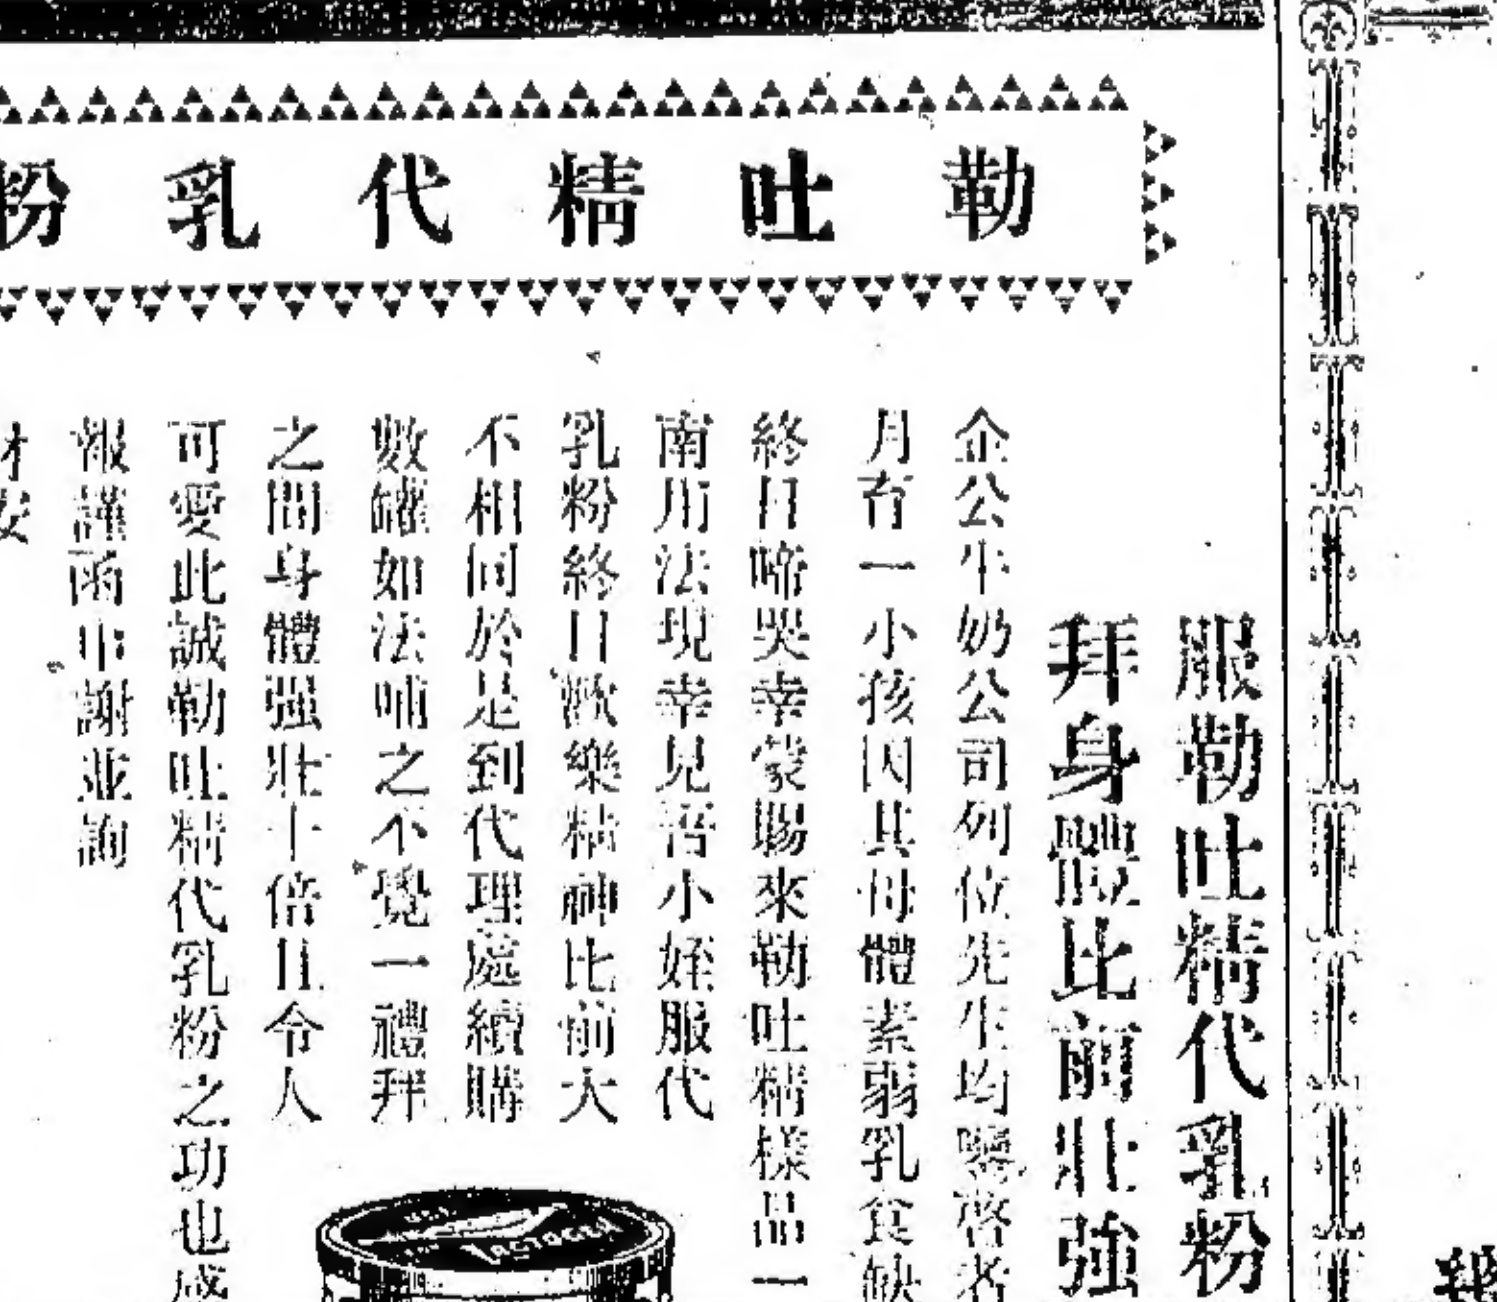 勒吐精代乳粉
服勒吐精代乳粉
拜身體比前壯強
企公牛奶公司列位先生均鑒啓者
月育一小孩因其母體素弱乳食缺
終日啼哭幸蒙賜來勒吐精樣品一
南用法現幸見吾小姪服代
乳粉終日歡樂精神比前大
不相同於是到代理處續購
數罐如法哺之不覺一禮拜
之間身體强壯十倍且令人
可愛此誠勒吐精代乳粉之功也感
報謹函申謝並詢
財安
LACTOGEN